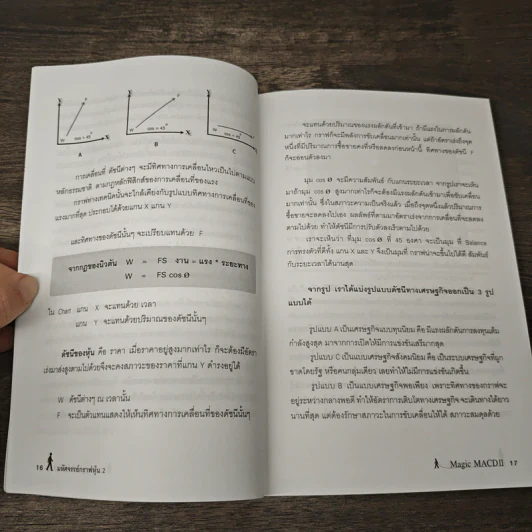 Y
F
W
cos > 45°
X
A
Y
F
W
cos = 45°
X
B
Y
W
cos < 45°
C
การเคลื่อนที่ ดัชนีต่างๆ จะมีทิศทางการเคลื่อนไหวเป็นไปตามแนว
หลักธรรมชาติ ตามกฎหลักฟิสิกส์ของการเคลื่อนที่ของแรง
กราฟทางเทคนิคนั้นจะใกล้เคียงกับรูปแบบทิศทางการเคลื่อนที่ของ
แรงมากที่สุด ประกอบได้ด้วยแกน X แกน Y
และทิศทางของดัชนีนั้นๆ จะเปรียบแทนด้วย F
จากกฎของนิวตัน W = FS งาน = แรง * ระยะทาง
W = FS cos Ø
ใน Chart แกน X จะแทนด้วย เวลา
แกน Y จะแทนด้วยปริมาณของดัชนีนั้นๆ
ดัชนีของหุ้น คือ ราคา เมื่อราคาอยู่สูงมากเท่าไร ก็จะต้องมีอัตรา
เร่งมาส่งสูงตามไปด้วยจึงจะคงสภาวะของราคาที่แกน Y ดำรงอยู่ได้
W ดัชนีต่างๆ ณ เวลานั้น
F จะเป็นตัวแทนแสดงให้เห็นทิศทางการเคลื่อนที่ของดัชนีนั้นๆ
16 มหัศจรรย์กราฟหุ้น 2
จะแทนด้วยปริมาณของแรงผลักดันที่เข้ามา ถ้ามีแรงในการผลักดัน
มากเท่าไร กราฟก็จะมีพลังการขับเคลื่อนมากเท่านั้น แต่ถ้าอัตราเร่งถึงจุด
หนึ่งที่มีปริมาณการซื้อขายคงที่หรือลดลงก่อนหน้านี้ ทิศทางของดัชนี F
ก็จะอ่อนตัวลงมา
มุม cos Ø จะมีความสัมพันธ์ กับแกนระยะเวลา จากรูปเราจะเห็น
มาถ้ามุม cos Ø สูงมากเท่าไรก็จะต้องมีแรงผลักดันเข้ามาเพื่อขับเคลื่อน
มากเท่านั้น ซึ่งในสภาวะความเป็นจริงแล้ว เมื่อถึงจุดหนึ่งแล้วปริมาณการ
ซื้อขายจะลดลงไปเอง ผลลัพธ์ที่ตามมาอัตราเร่งจากการเคลื่อนที่จะลดลง
ตามไปด้วย ทำให้ดัชนีมีการปรับตัวลงเร็วตามไปด้วย
เราจะเห็นว่า ที่มุม cos Ø ที่ 45 องศา จะเป็นมุม ที่ Balance
การทรงตัวที่ดีทั้ง แกน X และ Y จึงเป็นมุมที่ กราฟน่าจะขึ้นไปได้ดี สัมพันธ์
กับระยะเวลาได้นานสุด
จากรูป เราได้แบ่งรูปแบบดัชนีทางเศรษฐกิจออกเป็น 3 รูป
แบบได้
รูปแบบ A เป็นเศรษฐกิจแบบทุนนิยม คือ มีแรงผลักดันการลงทุนเติม
กำลังสูงสุด มาจากการเปิดให้มีการแข่งขันเสรีมากสุด
รูปแบบ C เป็นแบบเศรษฐกิจสังคมนิยม คือ เป็นระบบเศรษฐกิจที่ถูก
ขาดโดยรัฐ หรือคนกลุ่มเดียว เลยทำให้ไม่มีการแข่งขันเกิดขึ้น
รูปแบบ B เป็นแบบเศรษฐกิจพอเพียง เพราะทิศทางของกราฟจะ
อยู่ระหว่างกลางพอดี ทำให้อัตราการเติบโตทางเศรษฐกิจ จะเดินทางได้ยาว
นานที่สุด แต่ต้องรักษาสภาวะในการขับเคลื่อนให้ได้ สภาวะสมดุลด้วย
Magic MACD II 17